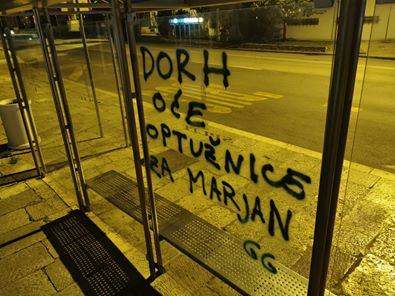 DORH
OĆE
OPTUŽNICE
RA MARJAN
GG